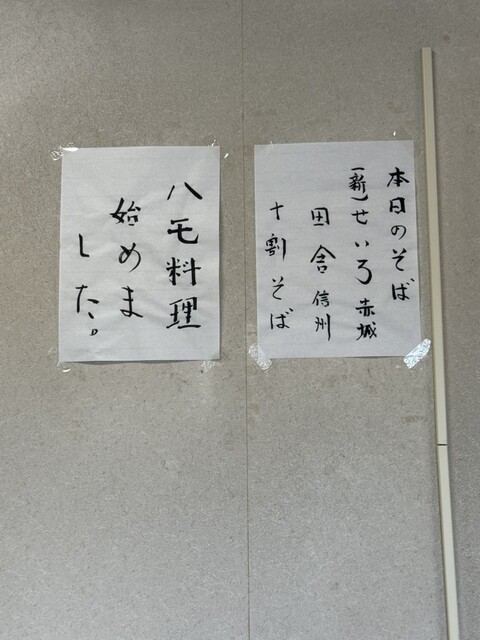 本日のそば
(新)せいろ 赤城
田舎 信州
十割そば
ハモ料理
始めま
した。